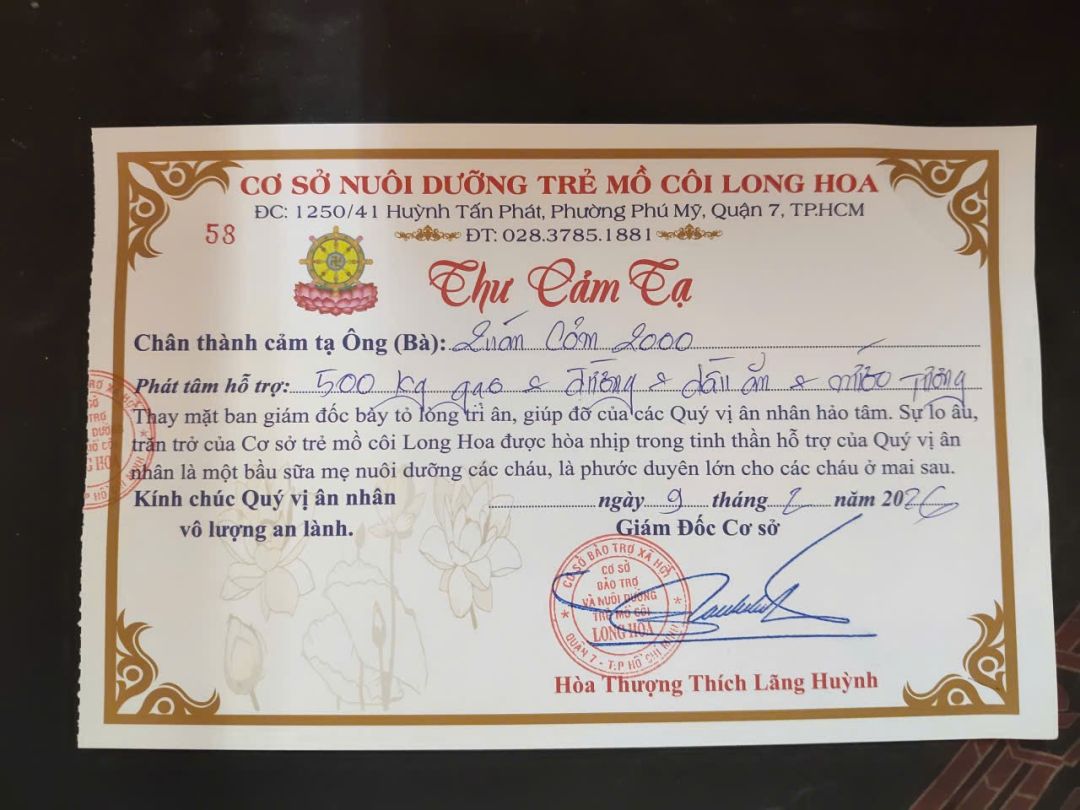 CƠ SỞ NUÔI DƯỠNG TRẺ MỒ CÔI LONG HOA
ĐC: 1250/41 Huỳnh Tấn Phát, Phường Phú Mỹ, Quận 7, TP.HCM
58
ĐT: 028.3785.1881
Thư Cảm Tạ
Chân thành cảm tạ Ông (Bà): Quán Cơm 2000
Phát tâm hỗ trợ: 500 kg gạo & đường & dầu ăn & nước tương
Thay mặt ban giám đốc bày tỏ lòng tri ân, giúp đỡ của các Quý vị ân nhân hảo tâm. Sự lo âu,
trăn trở của Cơ sở trẻ mồ côi Long Hoa được hòa nhịp trong tinh thần hỗ trợ của Quý vị ân
nhân là một bầu sữa mẹ nuôi dưỡng các cháu, là phước duyên lớn cho các cháu ở mai sau.
Kính chúc Quý vị ân nhân
vô lượng an lành.
ngày 9 tháng 2 năm 2026
Giám Đốc Cơ sở
CƠ SỞ BẢO TRỢ XÃ HỘI
CƠ SỞ
BẢO TRỢ
VÀ NUÔI DƯỠNG
TRẺ MỒ CÔI
LONG HOA
QUẬN 7 - T.P HỒ CHÍ MINH
Hòa Thượng Thích Lãng Huỳnh